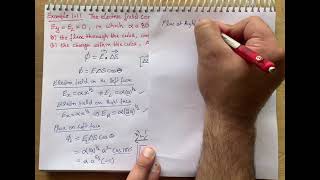 Example 1.11 The electric field
E_y = E_z = 0, in which α = 80
(a) the flux through the cube, and
(b) the charge within the cube. A
φ = E⃗.ΔS⃗
φ = EΔS cosθ
Electric field on the left face
E_x = αx^½ ⇒ E_L = αa^½
Electric field on Right face
E_x = αx^½ ⇒ E_R = α(2a)^½
Flux on Left face
φ_L = E_LΔS cosθ
= α(a)^½ a² cos180
= α a^5/2 (-1)
Flux at Right